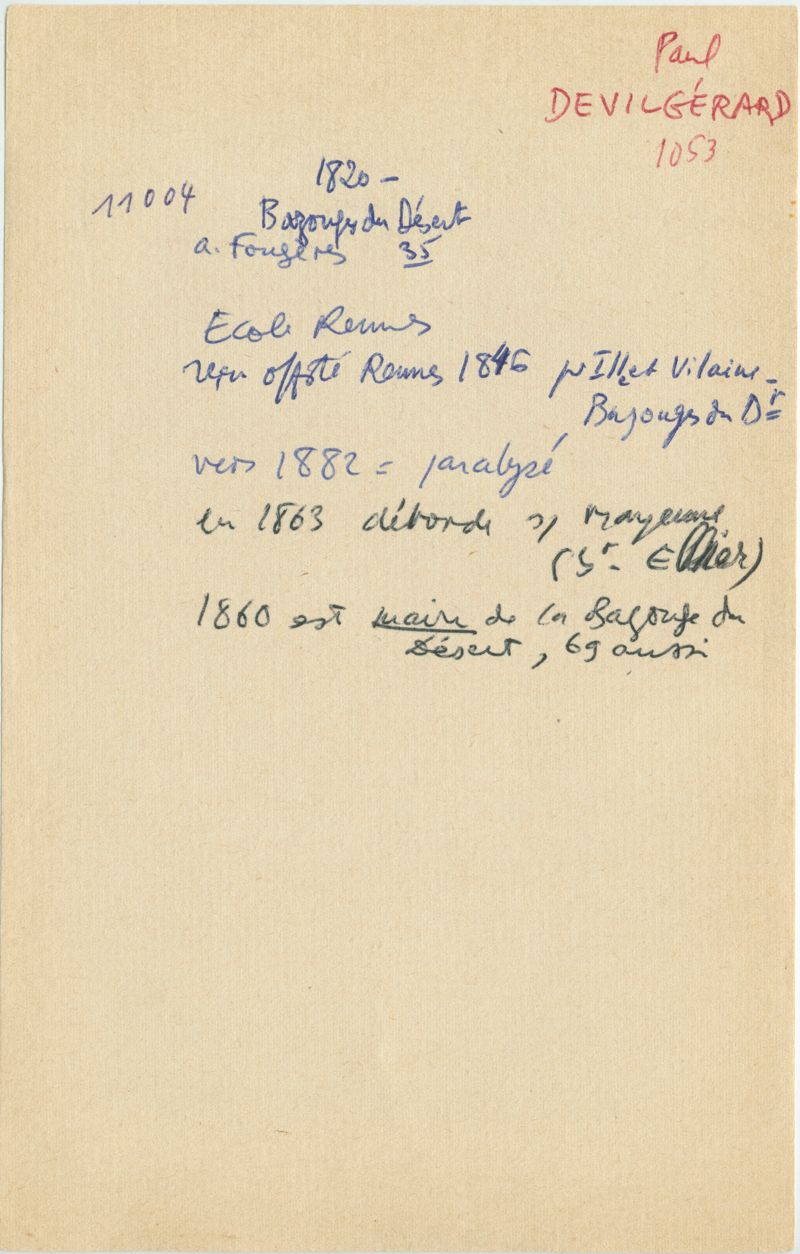 Paul
DEVILGÉRARD
1053
11004
1820 –
Bazouges du Désert
a. Fougères 35
Ecole Rennes
reçu offté Rennes 1846 pr Ille et Vilaine –
Bazouges du Dr
vers 1882 = paralysé
en 1863 déborde s/ Mayenne
(St. Ellier)
1860 est maire de la Bazouge du
Désert, 69 aussi